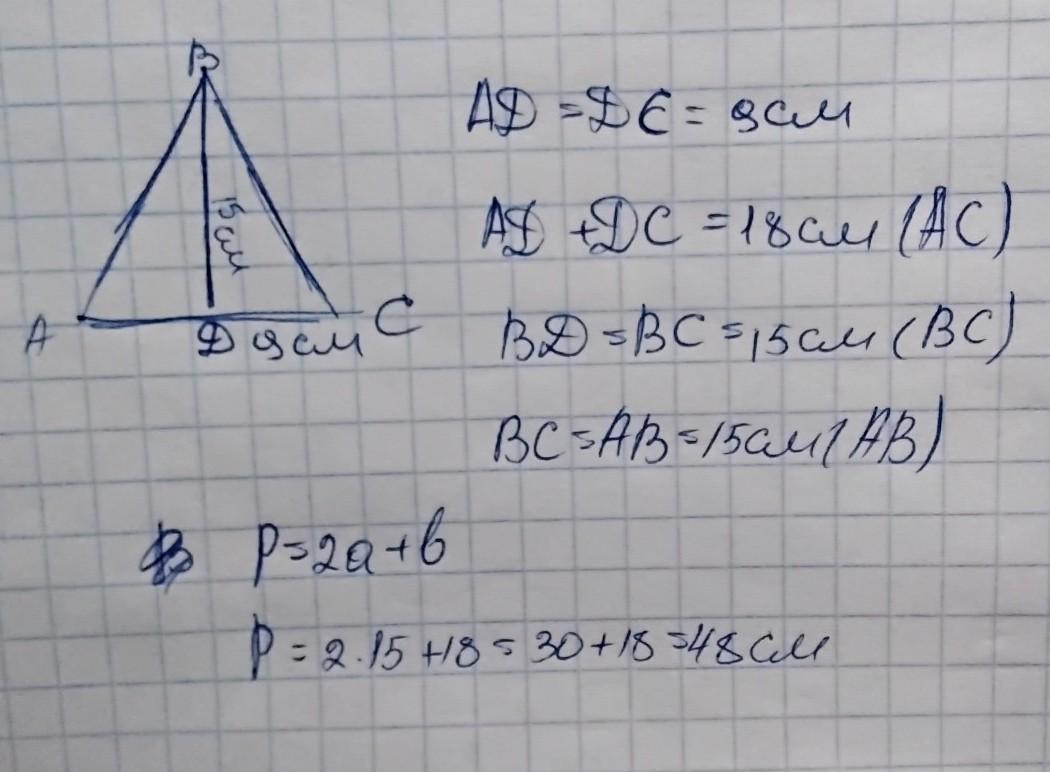 B
15см
A
D 9см C
AD = DC = 9см
AD + DC = 18см (AC)
BD = BC = 15см (BC)
BC = AB = 15см (AB)
P = 2a + b
P = 2 · 15 + 18 = 30 + 18 = 48см